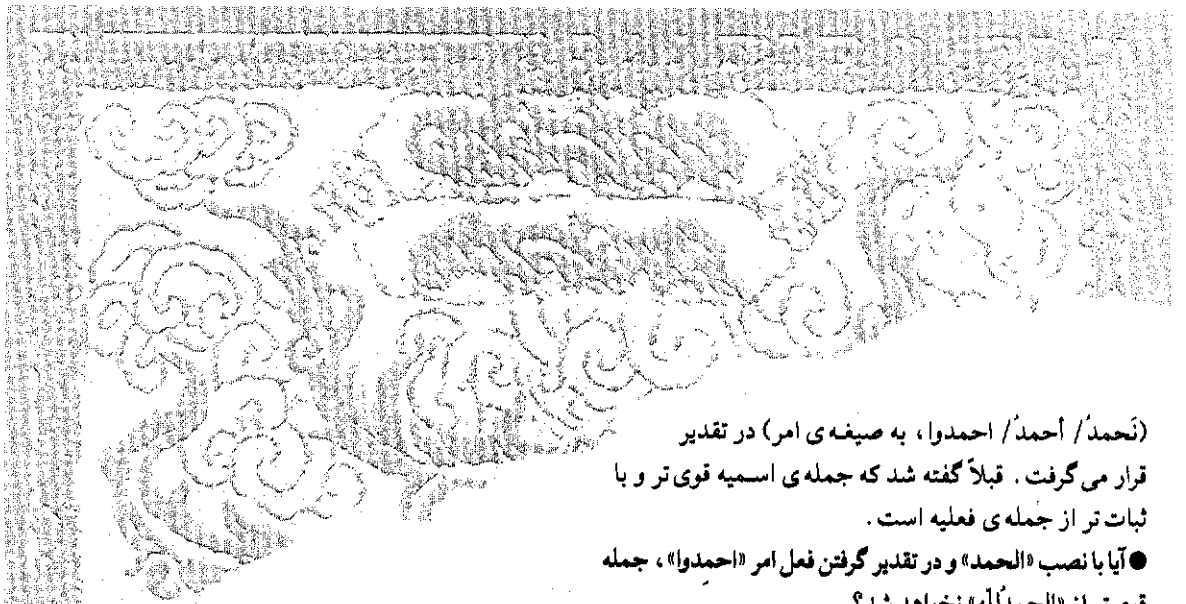 (نَحمدُ/ أحمدُ/ احمدوا، به صیغه ی امر) در تقدیر
قرار می گرفت. قبلاً گفته شد که جمله ی اسمیه قوی تر و با
ثبات تر از جمله ی فعلیه است.
● آیا با نصب «الحمد» و در تقدیر گرفتن فعل امر «احمِدوا»، جمله
قوی تر از «الحمدُللّه» نخواهد شد؟